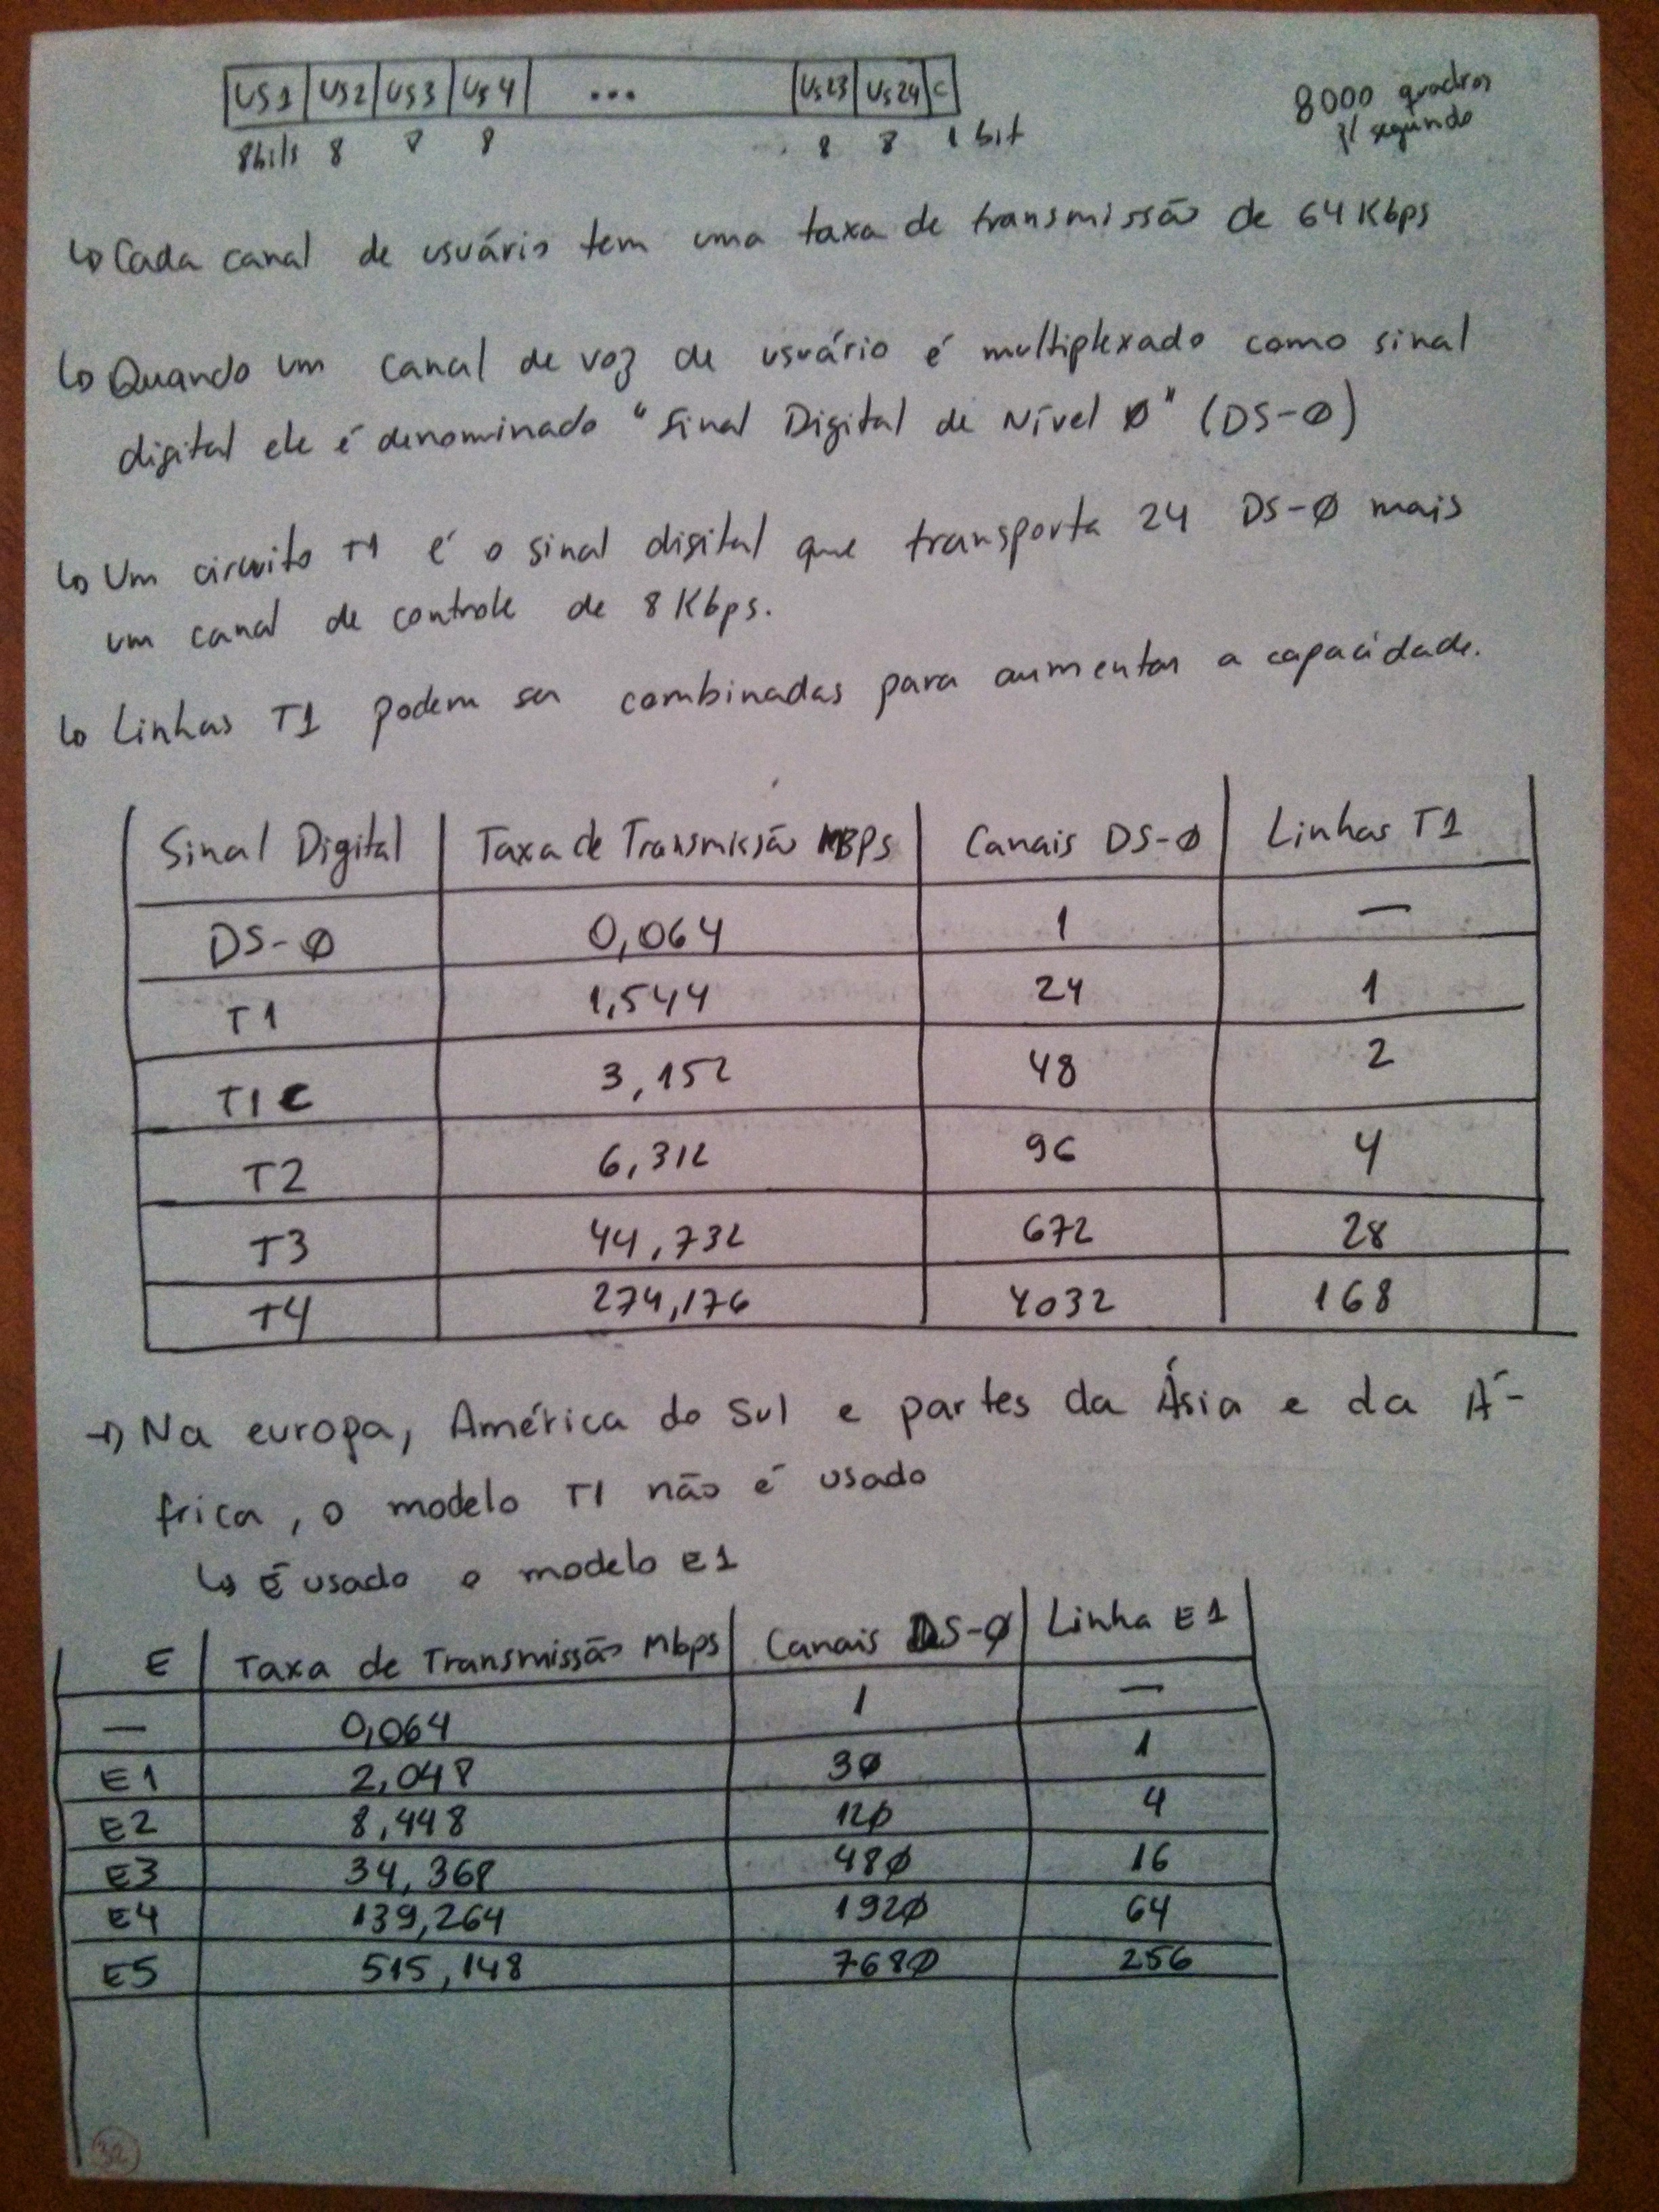 US1 US2 US3 US4 ... US23 US24 C
8bits 8 8 8 8 8 1 bit
8000 quadros
p/ segundo
↳ Cada canal de usuário tem uma taxa de transmissão de 64 Kbps
↳ Quando um canal de voz de usuário é multiplexado como sinal
digital ele é denominado "Sinal Digital de Nível 0" (DS-0)
↳ Um circuito T1 é o sinal digital que transporta 24 DS-0 mais
um canal de controle de 8 Kbps.
↳ Linhas T1 podem ser combinadas para aumentar a capacidade.
Sinal Digital Taxa de Transmissão MBPs Canais DS-0 Linhas T1
DS-0 0,064 1 —
T1 1,544 24 1
T1C 3,152 48 2
T2 6,312 96 4
T3 44,732 672 28
T4 274,176 4032 168
→ Na europa, América do Sul e partes da Ásia e da Á-
frica, o modelo T1 não é usado
↳ É usado o modelo E1
E Taxa de Transmissão Mbps Canais DS-0 Linha E1
— 0,064 1 —
E1 2,048 30 1
E2 8,448 120 4
E3 34,368 480 16
E4 139,264 1920 64
E5 515,148 7680 256
32